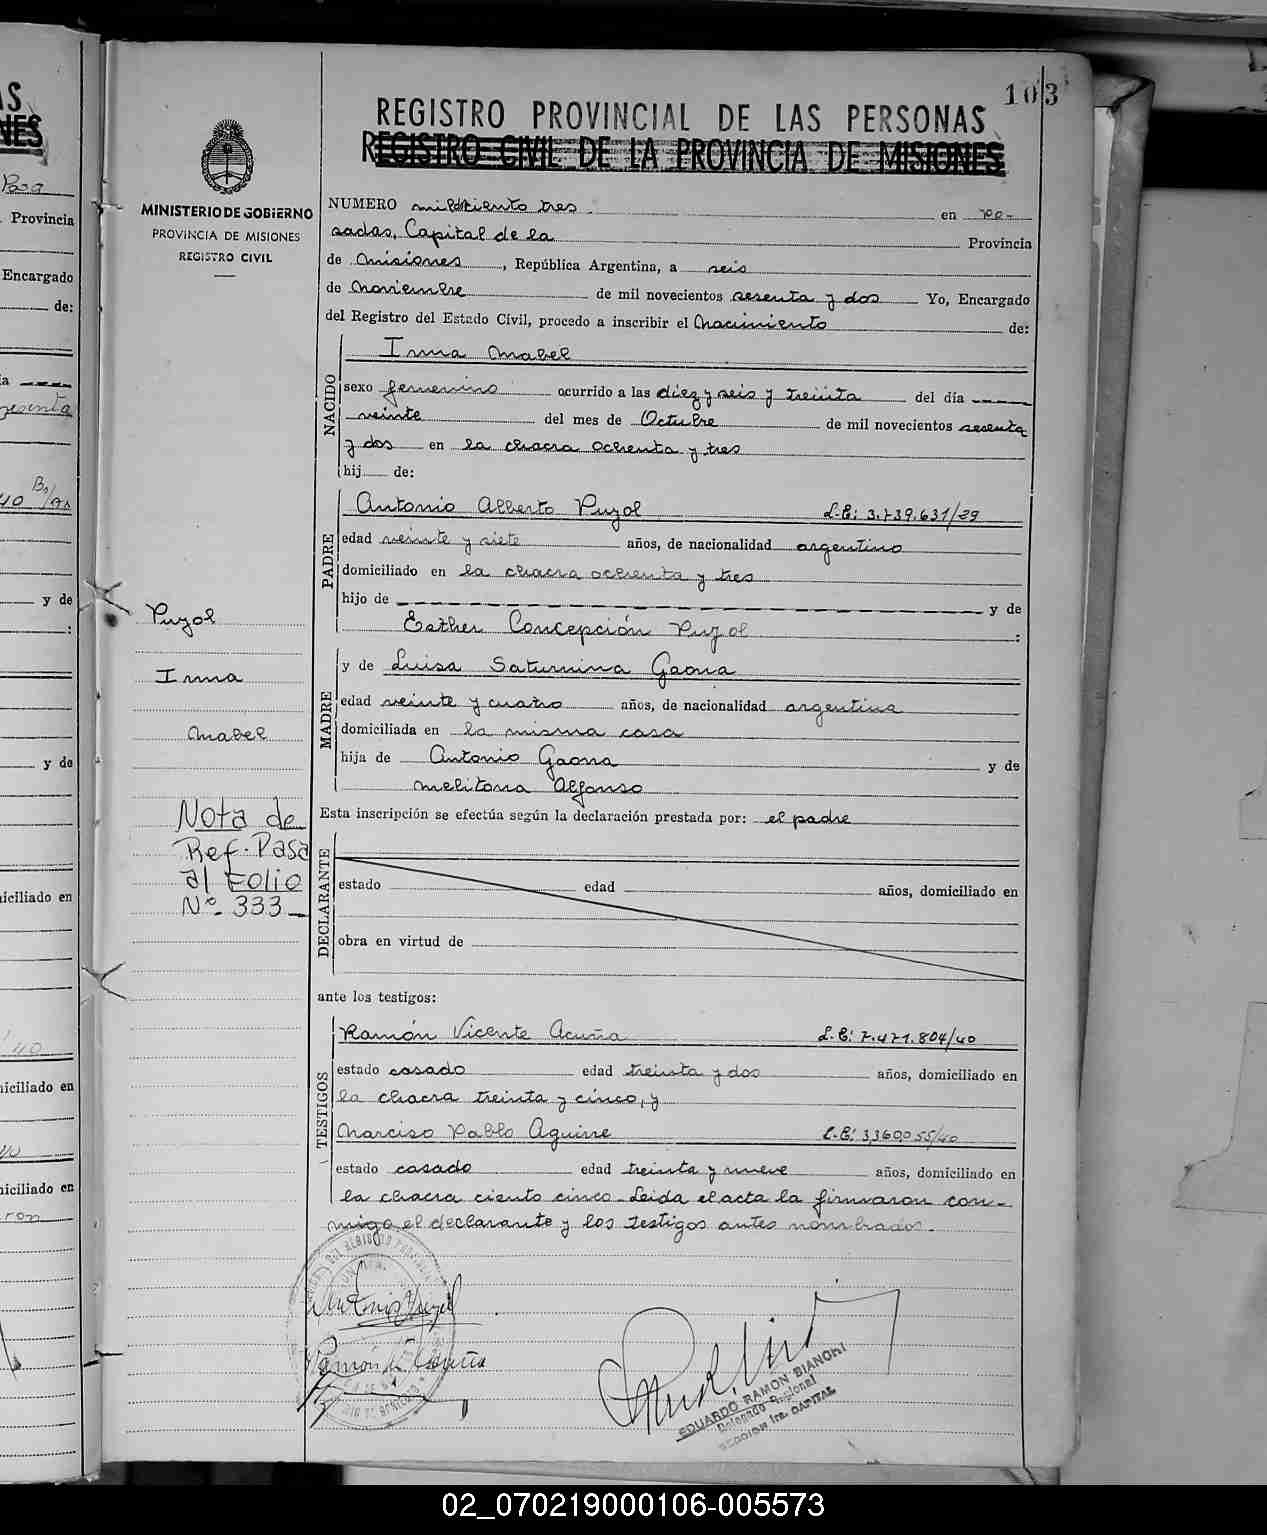 103
REGISTRO PROVINCIAL DE LAS PERSONAS
REGISTRO CIVIL DE LA PROVINCIA DE MISIONES
MINISTERIO DE GOBIERNO
PROVINCIA DE MISIONES
REGISTRO CIVIL
NUMERO mil ciento tres en Po-
sadas, Capital de la Provincia
de Misiones, República Argentina, a seis
de Noviembre de mil novecientos sesenta y dos Yo, Encargado
del Registro del Estado Civil, procedo a inscribir el Nacimiento de:
NACIDO
Irma Mabel
sexo femenino ocurrido a las diez y seis y treinta del día
veinte del mes de Octubre de mil novecientos sesenta
y dos en la chacra ochenta y tres
hij de:
PADRE
Antonio Alberto Pujol L.E: 3.739.631/29
edad veinte y siete años, de nacionalidad argentino
domiciliado en la chacra ochenta y tres
hijo de y de
Esther Concepción Pujol :
MADRE
y de Luisa Saturnina Gaona
edad veinte y cuatro años, de nacionalidad argentina
domiciliada en la misma casa
hija de Antonio Gaona y de
Melitona Alfonso
Esta inscripción se efectúa según la declaración prestada por: el padre
DECLARANTE
estado edad años, domiciliado en
obra en virtud de
ante los testigos:
TESTIGOS
Ramón Vicente Acuña L.E: 7.471.804/40
estado casado edad treinta y dos años, domiciliado en
la chacra treinta y cinco, y
Narciso Pablo Aguirre L.E: 3,360,055/40
estado casado edad treinta y nueve años, domiciliado en
la chacra ciento cinco. Leida el acta la firmaron con-
migo el declarante y los testigos antes nombrados.
Pujol
Irma
Mabel
Nota de
Ref. Pasa
al Folio
Nº 333
Ramón V. Acuña
EDUARDO RAMON BIANCHI
Delegado Regional
SECCION 1ra. CAPITAL
02_070219000106-005573